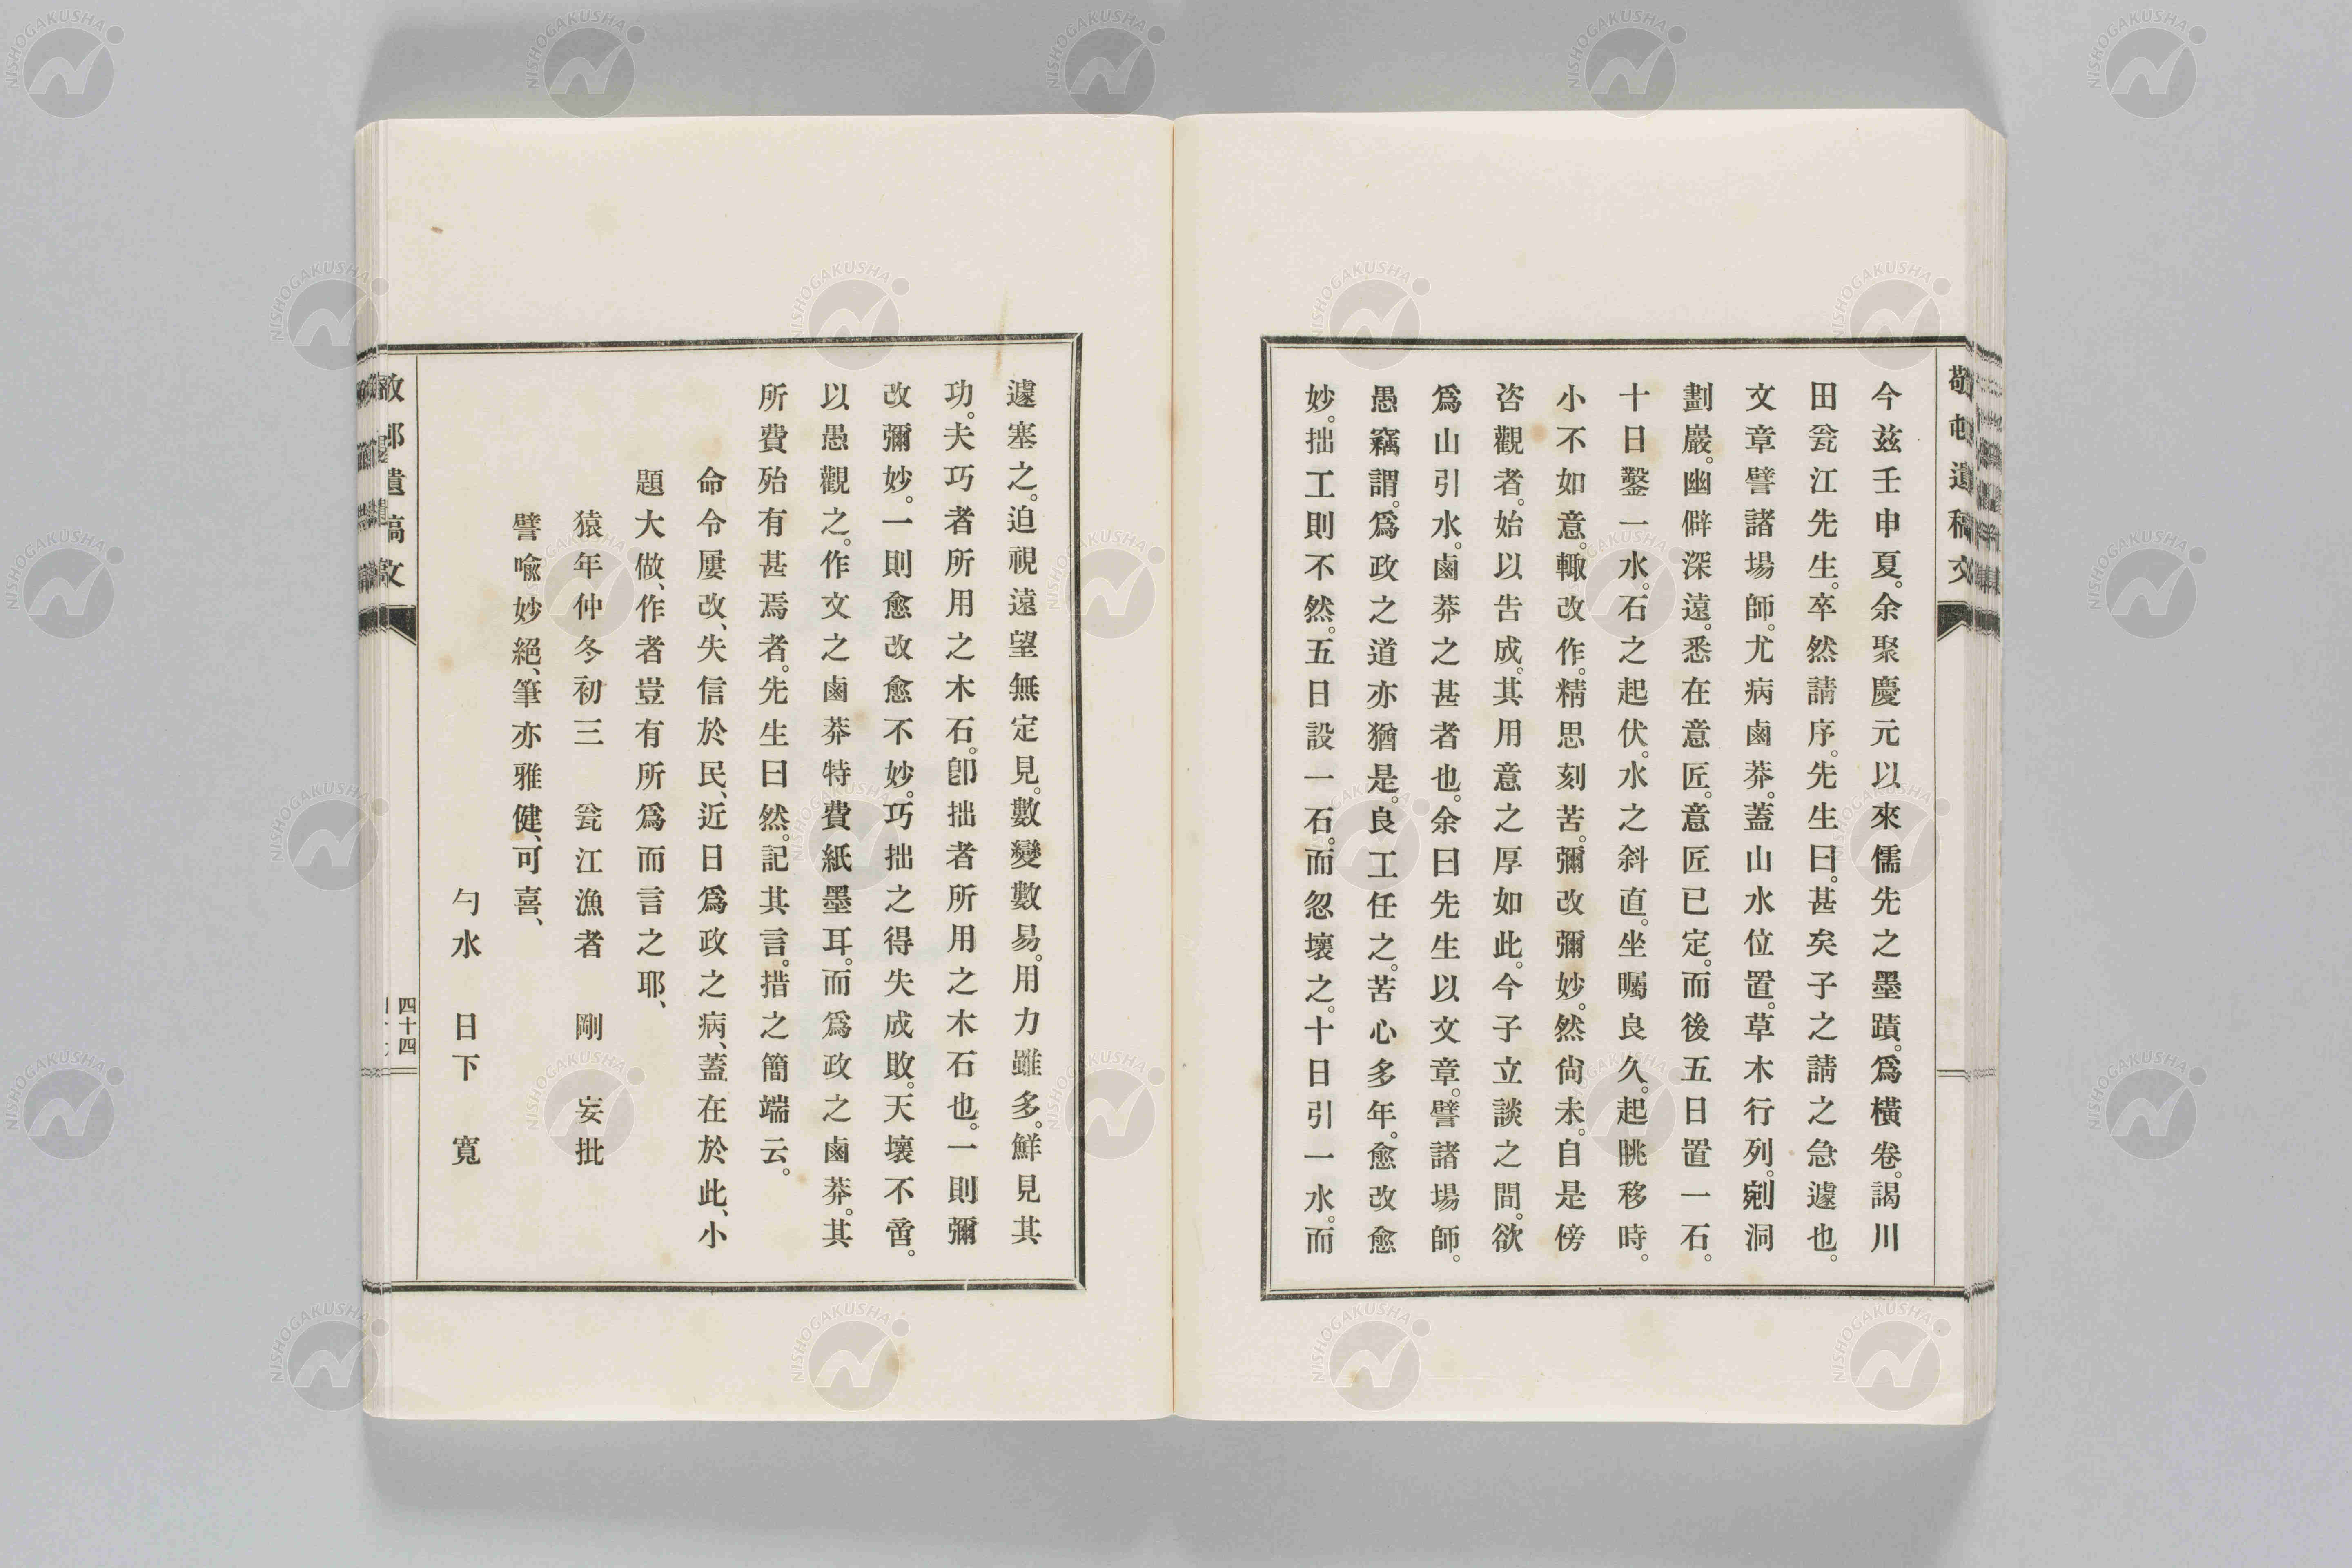 今玆壬申夏。余聚慶元以來儒先之墨蹟。爲橫卷。謁川
田瓮江先生。卒然請序。先生曰。甚矣子之請之急遽也。
文章譬諸場師。尤病鹵莽。蓋山水位置。草木行列。剜洞
劃巖。幽僻深遠。悉在意匠。意匠已定。而後五日置一石。
十日鑿一水。石之起伏。水之斜直。坐矚良久。起眺移時。
小不如意。輙改作。精思刻苦。彌改彌妙。然尙未。自是傍
咨觀者。始以吿成。其用意之厚如此。今子立談之間。欲
爲山引水。鹵莽之甚者也。余曰先生以文章。譬諸場師。
愚竊謂。爲政之道亦猶是。良工任之。苦心多年。愈改愈
妙。拙工則不然。五日設一石。而忽壞之。十日引一水。而
遽塞之。迫視遠望無定見。數變數易。用力雖多。鮮見其
功。夫巧者所用之木石。卽拙者所用之木石也。一則彌
改彌妙。一則愈改愈不妙。巧拙之得失成敗。天壤不啻。
以愚觀之。作文之鹵莽特費紙墨耳。而爲政之鹵莽。其
所費殆有甚焉者。先生曰然。記其言。措之簡端云。
命令屢改、失信於民、近日爲政之病、蓋在於此、小
題大做、作者豈有所爲而言之耶、
猿年仲冬初三 瓮江漁者 剛 妄批
譬喩妙絕、筆亦雅健、可喜、
勺水 日下 寬
四十四
NISHOGAKUSHA